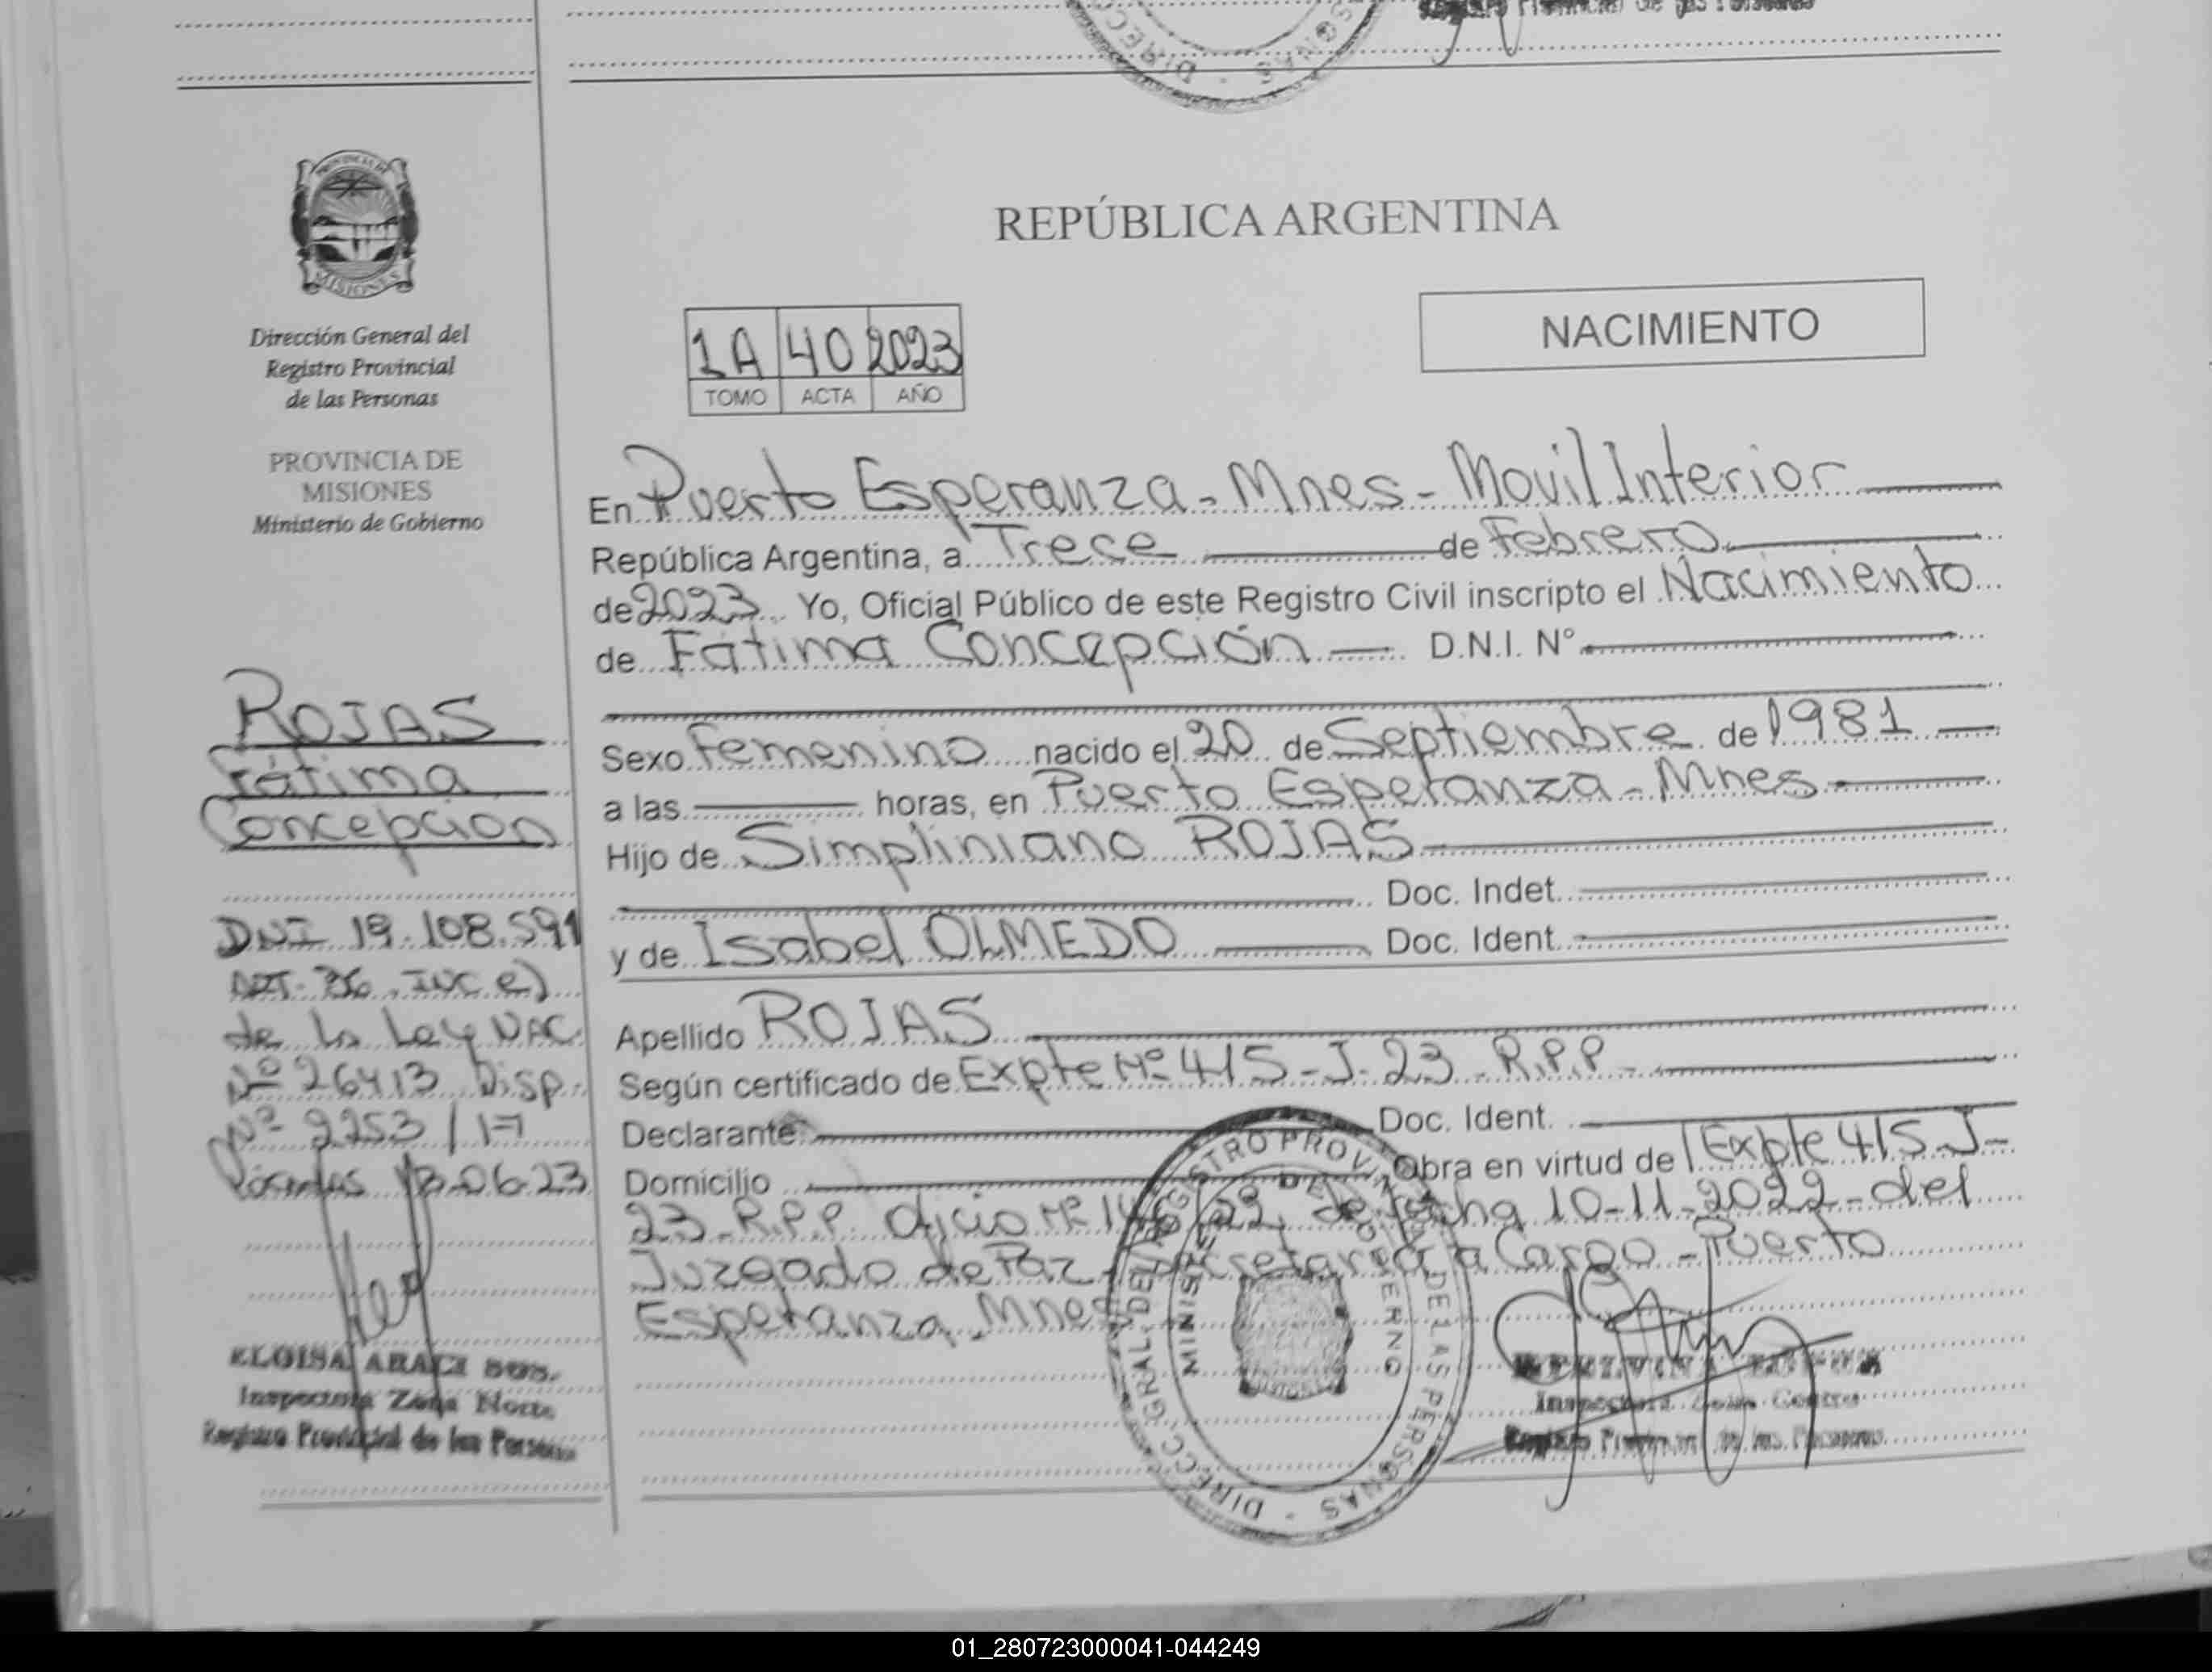 PROVINCIA DE
MISIONES
Dirección General del
Registro Provincial
de las Personas
PROVINCIA DE
MISIONES
Ministerio de Gobierno
ROJAS
Fátima
Concepción
DNI 19.108.591
ART. 36. INC e)
de la Ley NAC
Nº 26413 Disp.
Nº 2253/17
Posadas 13-06-23
ELOISA ARACI
Inspectora Zona Norte
Registro Provincial de las Personas
REPÚBLICA ARGENTINA
NACIMIENTO
1A 40 2023
TOMO ACTA AÑO
En Puerto Esperanza - Mnes - Movil Interior
República Argentina, a Trece de Febrero
de 2023 Yo, Oficial Público de este Registro Civil inscripto el Nacimiento
de Fátima Concepción D.N.I. Nº
Sexo Femenino nacido el 20 de Septiembre de 1981
a las horas, en Puerto Esperanza - Mnes
Hijo de Simpliniano ROJAS
Doc. Indet.
y de Isabel OLMEDO Doc. Ident.
Apellido ROJAS
Según certificado de Expte Nº 415-J-23-R.P.P
Declarante: Doc. Ident.
Domicilio Obra en virtud de Expte 415-J-
23-R.P.P. Oficio Nº de fecha 10-11-2022-del
Juzgado de Paz Secretaria a Cargo - Puerto
Esperanza, Mnes
DIRECC. GRAL. DEL REGISTRO PROVINCIAL DE LAS PERSONAS
MINISTERIO DE GOBIERNO
Inspectora Zona Centro
Registro Provincial de las Personas
01_280723000041-044249